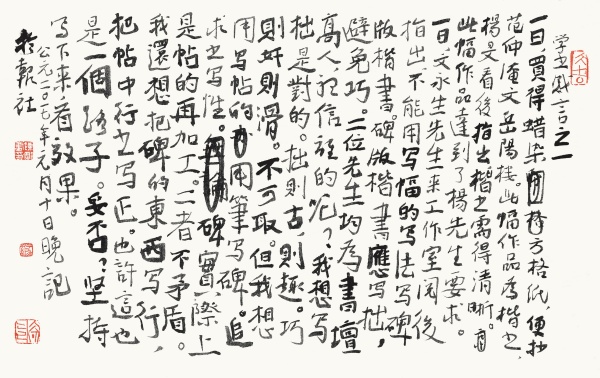 学书感言之一
一日，買得蜡染方格纸，便抄
范仲淹文岳陽楼。此幅作品为楷书，
楊旻看後指出楷书需得清晰。
此幅作品達到了楊先生要求。
一日文永生先生来工作室阅後
指出不能用写幅的写法写碑
版楷書。碑版楷書應写拙，
避免巧。二位先生均为書壇
高人，我信誰的呢？我想写
拙是對的。拙则古，则趣。巧
则奸则滑。不可取。但我想
用写帖的用筆写碑。追
求书写性。碑實際上
是帖的再加工。二者不矛盾。
我還想把碑的東西写行，
把帖中行书写正。也許這也
是一個路子。妥否？坚持
写下来，看效果。
公元二〇一七年元月十日晚記
於報社